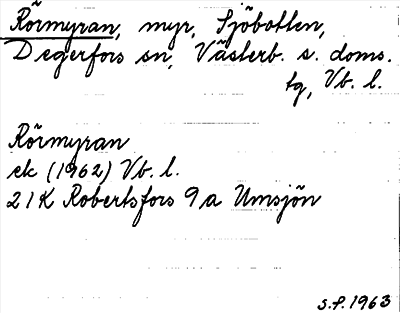 Rörmyran, myr, Sjöbotten,
Degerfors sn, Västerb. s. doms.
tg, Vb. l.
Rörmyran
ek (1962) Vb. l.
21K Robertsfors 9a Umsjön
s.f. 1963